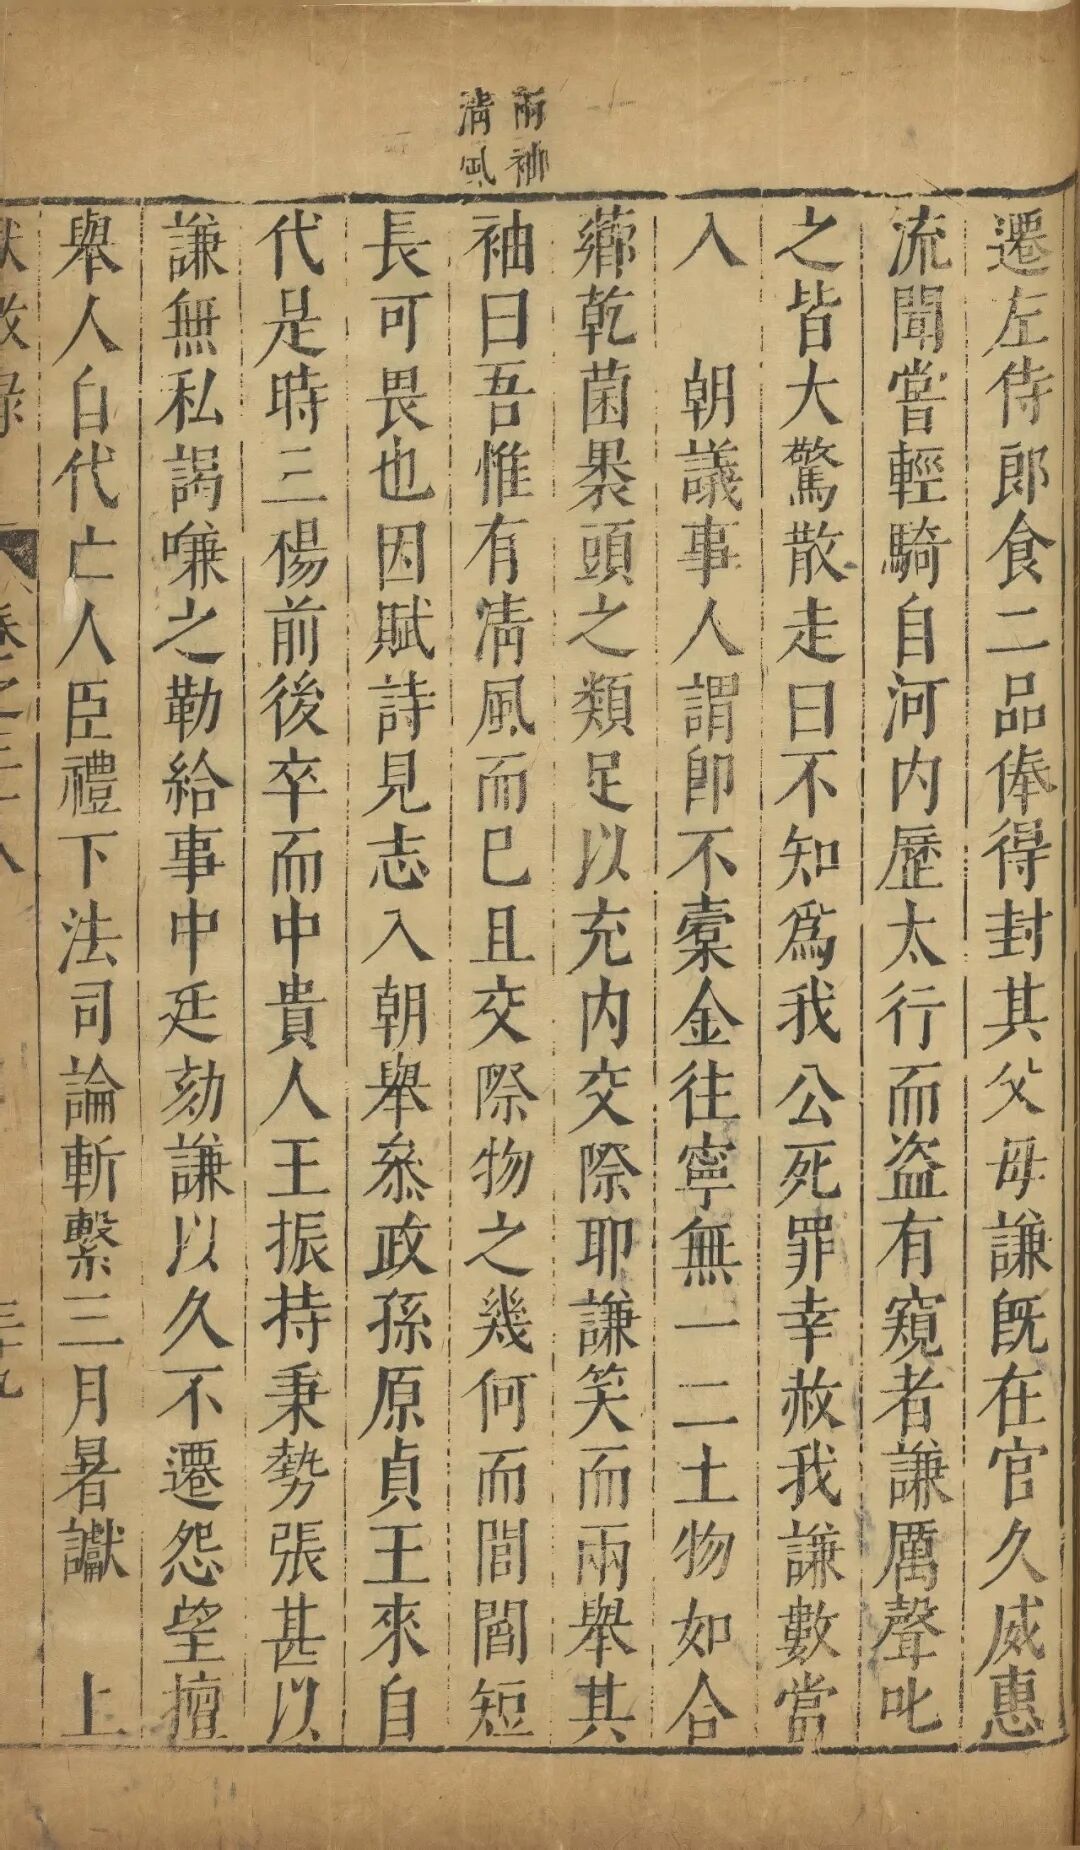 兩袖
清風
遷左侍郎食二品俸得封其父母謙旣在官久威惠
流聞嘗輕騎自河内歷太行而盗有窺者謙厲聲叱
之皆大驚散走曰不知爲我公死罪幸赦我謙數當
入 朝議事人謂卽不橐金往寧無一二土物如合
薌乾菌褁頭之類足以充内交際耶謙笑而兩舉其
袖曰吾惟有清風而已且交際物之幾何而閭閻短
長可畏也因賦詩見志入朝舉叅政孫原貞王來自
代是時三楊前後卒而中貴人王振持秉勢張甚以
謙無私謁嗛之勒給事中廷劾謙以久不遷怨望擅
舉人自代亡人臣禮下法司論斬繫三月暑讞 上
獻徵錄
卷之三十八
三十九